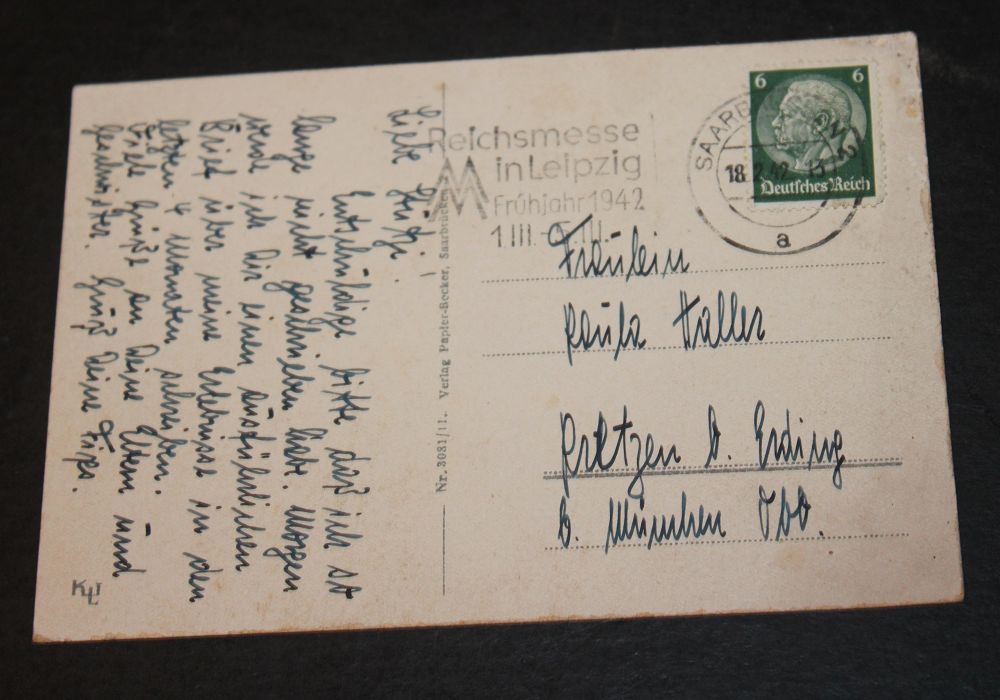 Liebe
Entschuldige bitte daß ich so
lange nicht geschrieben habe. Morgen
werde ich Dir einen ausführlichen
Brief über meine Erlebnisse in den
letzten 4 Monaten schreiben.
Viele Grüße an Deine Eltern und
Geschwister. Gruß Deine
Nr. 3081/11. Verlag Papier-Becker, Saarbrücken
Reichsmesse
in Leipzig
Frühjahr 1942
1.III.
SAARB
18.2.42
a
6 6
Deutsches Reich
Fräulein
Paula Haller
Pretzen b. Erding
b. München Obb.